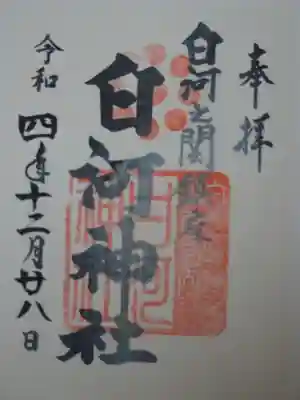 奉拝
白河之関鎮座
白河神社
令和四年十二月廿八日